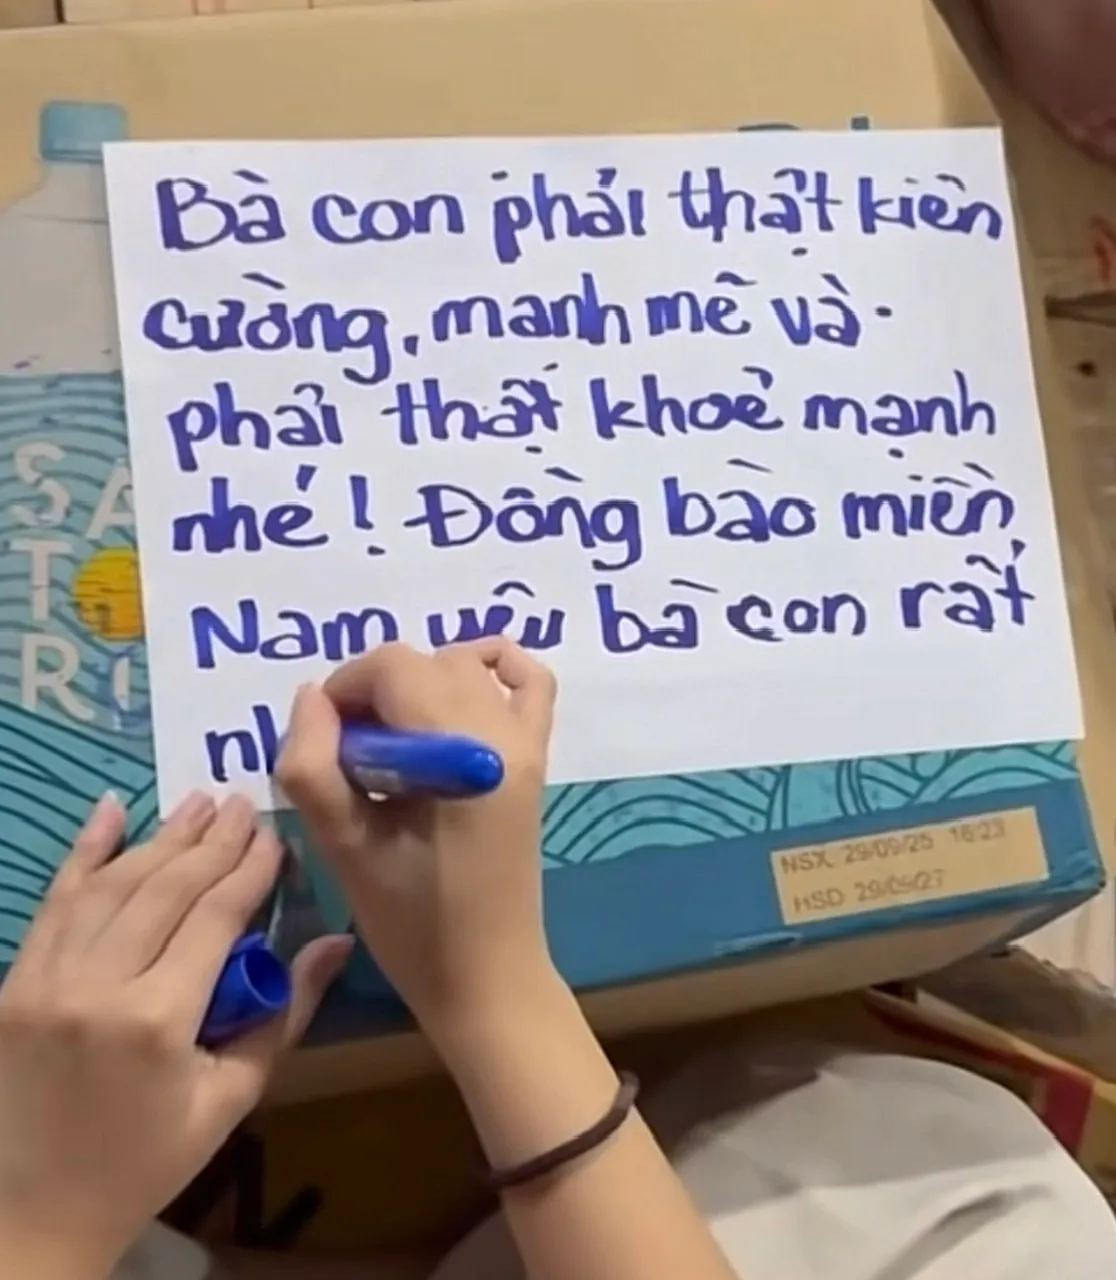 Bà con phải thật kiên
cường, mạnh mẽ và
phải thật khoẻ mạnh
nhé! Đồng bào miền
Nam yêu bà con rất
SA
T
R
NSX 29/09/25 16:23
HSD 29/09/27